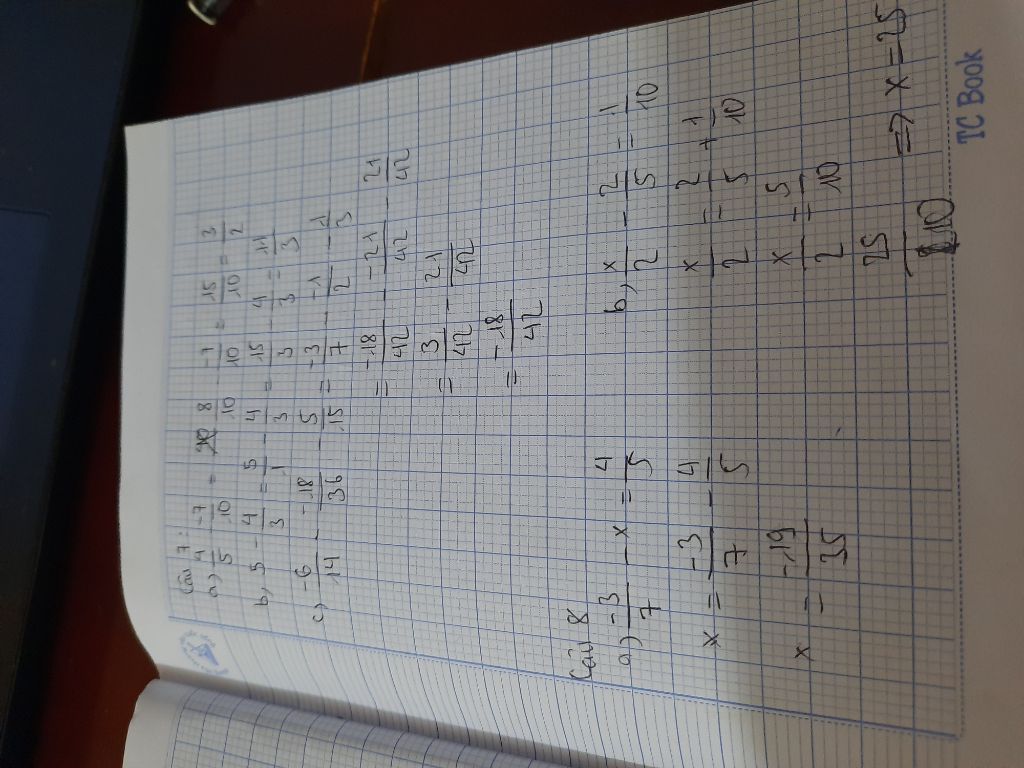 Câu 7:
a) 4/5 - -7/10 = 8/10 - -7/10 = 15/10 = 3/2
b) 5 - 4/3 = 5/1 - 4/3 = 15/3 - 4/3 = 11/3
c) -6/14 - -18/36 - 5/15 = -3/7 - -1/2 - 1/3
= -18/42 - -21/42 - 21/42
= 3/42 - 21/42
= -18/42
Câu 8
a) -3/7 - x = 4/5
x = -3/7 - 4/5
x = -19/35
b) x/2 - 2/5 = 1/10
x/2 = 2/5 + 1/10
x/2 = 5/10
25/10 => x = 25
TC Book